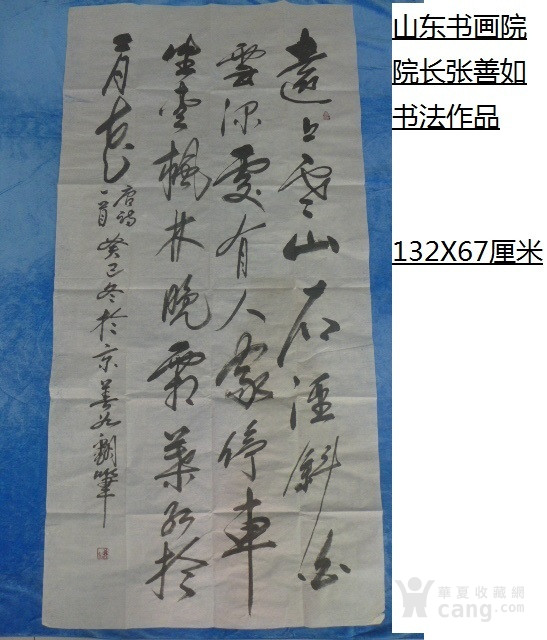 遠上寒山石徑斜白
雲深處有人家停車
坐愛楓林晚霜葉红於
二月花
唐诗
一首 癸巳冬於京善如
山东书画院
院长张善如
书法作品
132X67厘米
華夏收藏網
cang.com